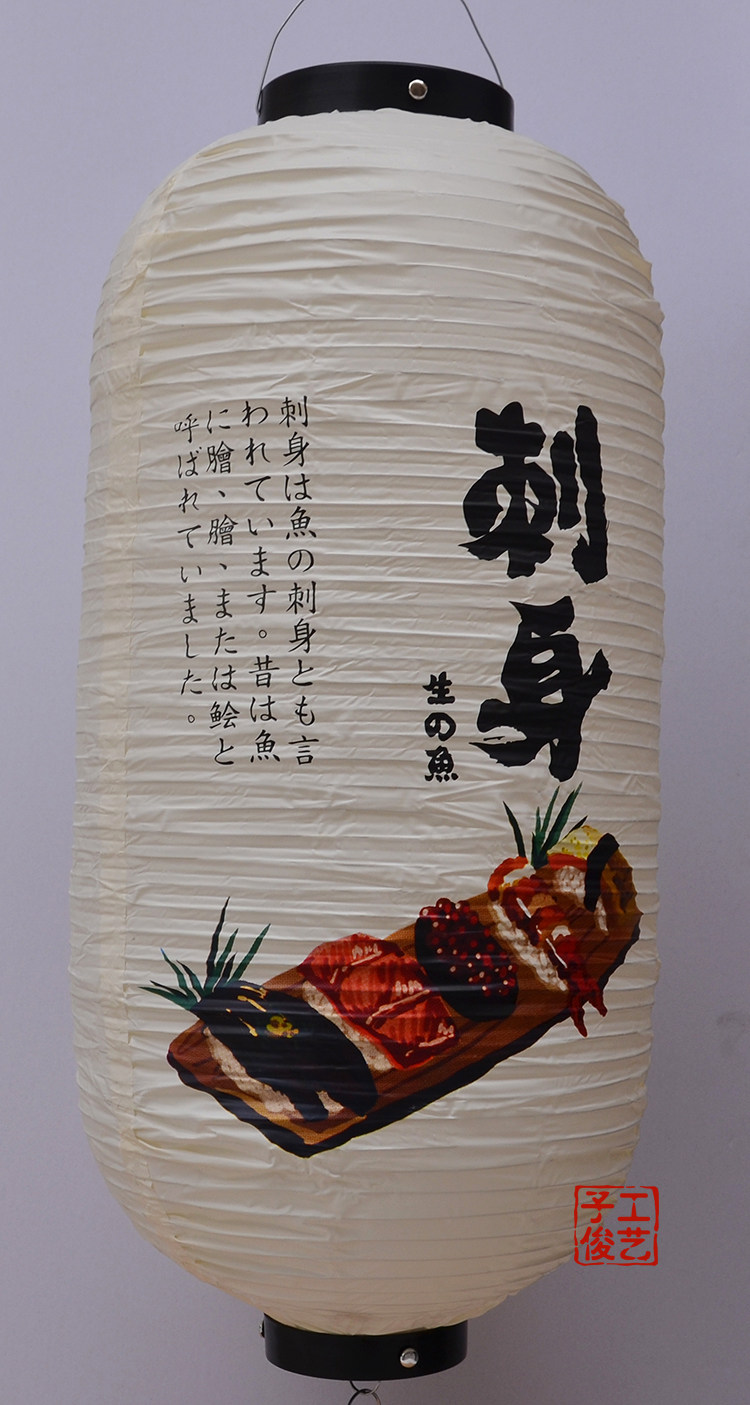 刺身
生の魚
刺身は魚の刺身とも言
われています。昔は魚
に膾、膾、または鲙と
呼ばれていました。
子俊
工艺